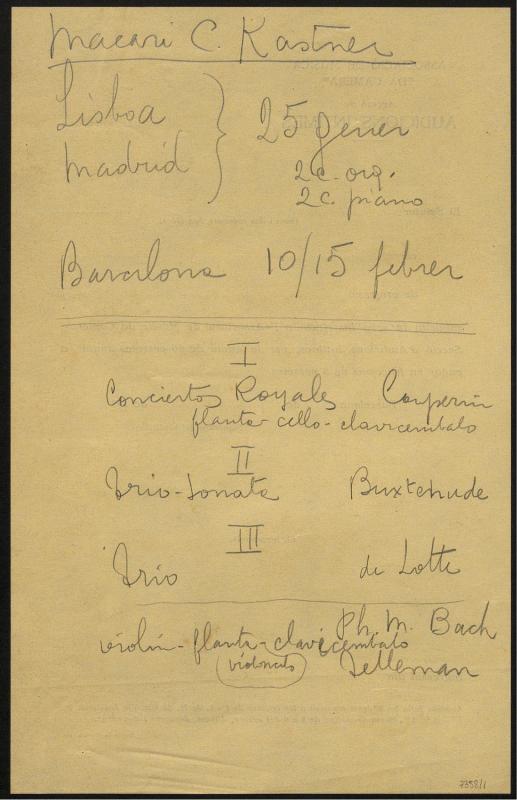 Macari C. Kastner
Lisboa
Madrid
25 gener
2 c. org.
2 c. piano
Barcelona 10/15 febrer
I
Conciertos Royales Couperin
flauta-cello-clavicembalo
II
Trio-Sonata Buxtehude
III
Trio de Lotti
Ph. M. Bach
violin-flauta-clavicembalo
violoncelo
Telleman
7358/1